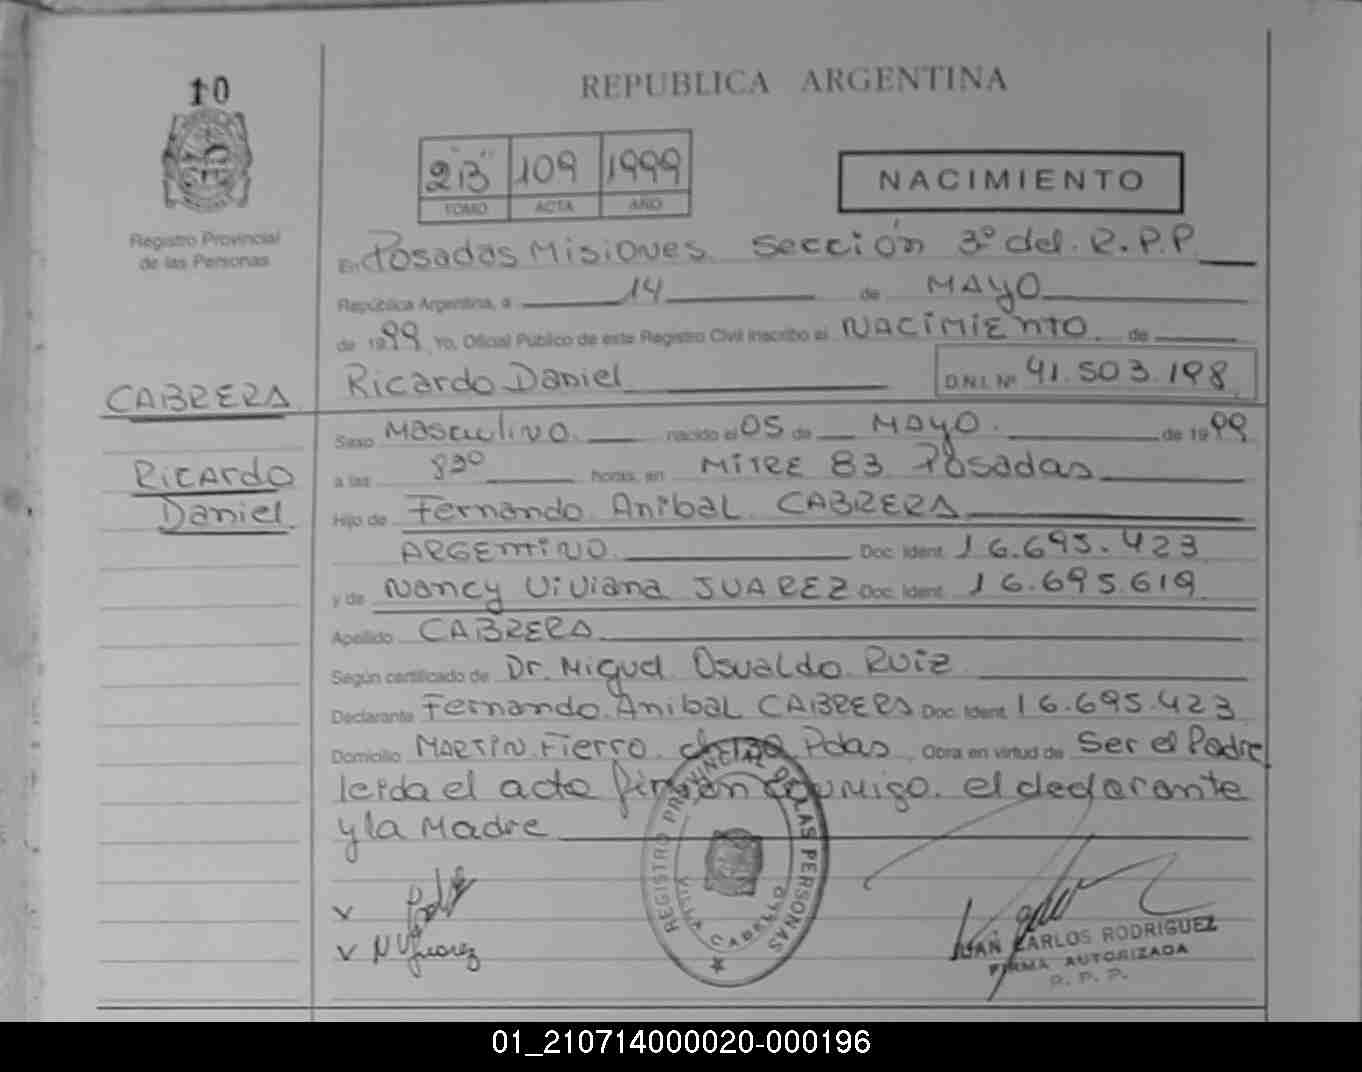 10
REPUBLICA ARGENTINA
2"B" 109 1999
TOMO ACTA AÑO
NACIMIENTO
Registro Provincial
de las Personas
En Posadas Misiones Sección 3º del R.P.P.
República Argentina, a 14 de MAYO
de 1999 Yo, Oficial Público de este Registro Civil inscribo el NACIMIENTO de
Ricardo Daniel D.N.I. Nº 41.503.198
CABRERA
Ricardo
Daniel
Sexo Masculino nacido el 05 de MAYO de 1999
a las 8³⁰ horas, en MITRE 83 Posadas
Hijo de Fernando Anibal CABRERA
ARGENTINO Doc. Ident. 16.695.423
y de Nancy Viviana JUAREZ Doc. Ident. 16.695.619
Apellido CABRERA
Según certificado de Dr. Miguel Osvaldo Ruiz
Declarante Fernando Anibal CABRERA Doc. Ident. 16.695.423
Domicilio MARTIN Fierro Pdas Obra en virtud de Ser el Padre
leida el acta firman conmigo el declarante
y la Madre
REGISTRO PROVINCIAL DE LAS PERSONAS
VILLA CABELLO
N V Juarez
JUAN CARLOS RODRIGUEZ
FIRMA AUTORIZADA
R. P. P.
01_210714000020-000196